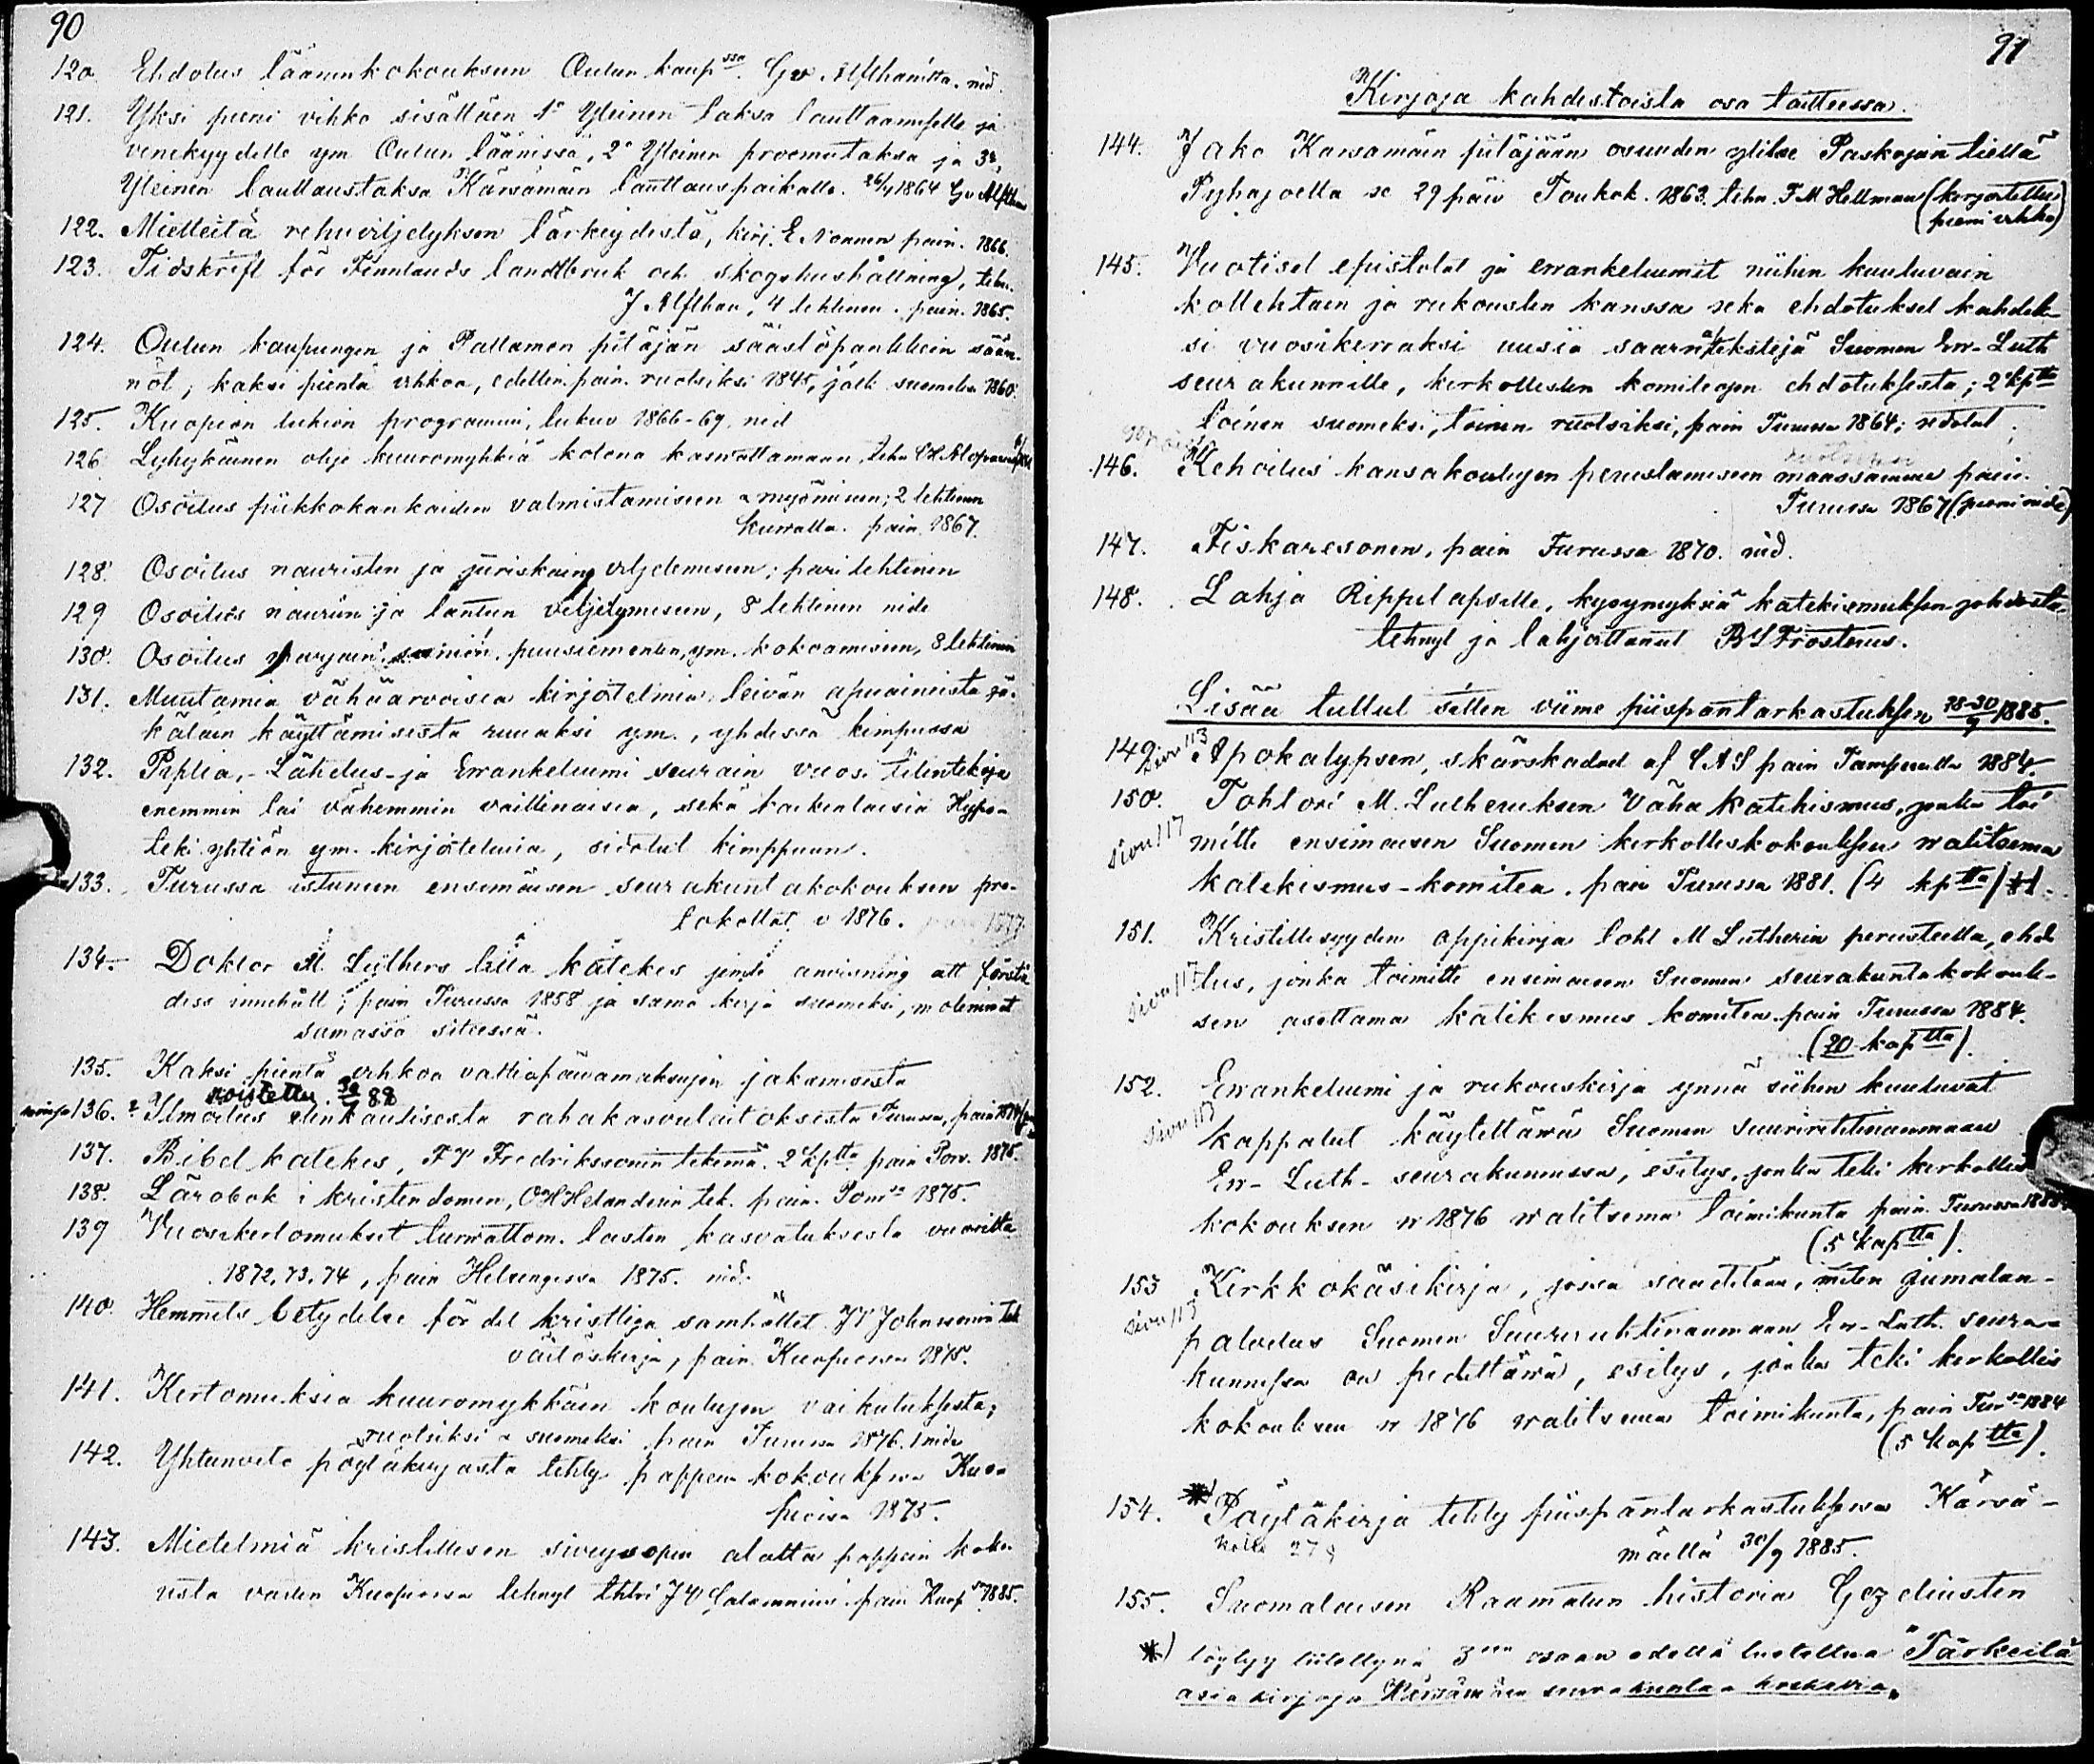 90
120. Ehdotus läänin kokouksun Oulun kaupssa. G v Alfthanista. nid.
121. Yksi pieni vihko sisältäen 1o Yleinen taksa lauttaamiselle ja
venekyydille ym Oulun läänissä, 2o Yleinen proomutaksa ja 3o,
Yleinen lauttaustaksa Kärsämän lauttauspaikalle. 26/4 1864 G v Alfthan
122. Mietteitä rehuviljelyksen tärkeydestä, kirj. E Nonnen pain. 1866.
123. Tidskrift för Finnlands landtbruk och skogshushållning, tehn.
J Alfthan, 4 lehtinen. pain. 1865.
124. Oulun kaupungin ja Paltamon pitäjän säästöpankkien sään-
nöt; kaksi pientä vihkoa, edellin. pain. ruotsiksi 1845, jälk suomeksi 1860
125. Kuopion lukion programmi, lukuv 1866-69. nid
126 Lyhykäinen ohje kuuromykkiä kotona kaswattamaan, tehn C H Alopaeus
127 Osoitus piikkokankaiden valmistamiseen a myömiseen; 2 lehtinen
kuwalla. pain. 1867.
128. Osoitus nauristen ja juriskain viljelemiseen; pari lehtinen
129 Osoitus nauriin ja lantun viljelymiseen, 8 lehtinen nide
130. Osoitus marjain, sienien, puusiementen, ym. kokoamiseen, 8 lehtinen
131. Muutamia vähäarvoisia kirjotelmia leivän apuaineista jä-
kälän käyttämisestä ruuaksi ym., yhdessä kimpussa
132. Piplia-, Lähetus- ja Evankeliumi seurain vuosi tilintekoja
enemmin tai vähemmin vaillinaisia, sekä kaikenlaisia Hypo-
teki yhtiön ym. kirjoteluita, sidotut kimppuun.
133. Turussa istuneen ensimäisen seurakuntakokouksen pro-
tokollat v 1876. pain 1877.
134. Doktor M. Luthers lilla katekes jemte anvisning att förstå
dess innehåll; pain Turussa 1858 ja sama kirja suomeksi, molemmat
samassa siteessä.
135. Kaksi pientä vihkoa valtiopäivämaksujen jakamisesta
poistettu. 88
136. Ilmoitus elinkautisesta rahakasvulaitoksesta Turussa, pain 1874
137. Bibel katekes, F V Fredrikssonin tekemä. 2 kptta pain Porv. 1875.
138. Lärobok i kristendomen, O H Helanderin tek. pain. Porvssa 1875.
139 Vuosikertomukset turwattom. lasten kasvatuksesta vuosilta
1872, 73, 74, pain Helsingissä 1875. nid.
140. Hemmets betydelse för det kristliga samhället. J V Johnssonin tek
väitöskirja, pain. Kuopiossa 1875.
141. Kertomuksia kuuromykkäin koulujen vaikutuksesta;
ruotsiksi a suomeksi pain Turussa 1876. 1 nide
142. Yhtanveto pöytäkirjasta tehty pappein kokouksessa Kuo-
piossa 1875.
143. Mietelmiä kristillisen siveysopin alalta pappein koko-
usta varten Kuopiossa tehnyt thtri J W Calamnius pain Kuopssa 1885.
91
Kirjoja kahdestoista osa taitteessa.
144. Jako Karsamäin pitäjään osuuden ylitse Paskojan tiellä
Pyhajoella se 29 päiv Toukok. 1863. tehn. F M Hellman (kirjoitettu
pieni vihko)
145. Vuotiset epistolat ja ewankeliumit niihin kuuluvain
kollehtain ja rukousten kanssa seka ehdotukset kahdek-
si vuosikerraksi uusia saarnatekstejä Suomen Ew-Luth
seurakunnille, kirkollisten komiteojen ehdotuksesta; 2 kptta
toinen suomeksi, toinen ruotsiksi, pain Turussa 1864; sidotut.
146. Kehoitus kansakoulujen perustamiseen maassamme pain.
Turussa 1867 (pieni nide)
147. Fiskaresonen, pain Turussa 1870. nid.
148. Lahja Rippilapsille, kysymyksiä katekismuksen johdosta
tehnyt ja lahjoittanut B S Frosterus.
Lisää tullut sitten viime piispantarkastuksen 28-30/9 1885.
149 sivu 113 Apokalypsen, skärskadad af C A S pain Tampereella 1884.
150. Tohtori M. Lutheruksen Vähä Katekismus, jonka toi
sivu 117 mitti ensimäisen Suomen kirkolliskokouksen walitsema
katekismus-komitea. pain Turussa 1881. (4 kptta)
151. Kristillisyyden oppikirja toht M Lutherin perusteella, ehd
sivu 117 tus, jonka toimitti ensimäisen Suomen seurakuntakokouk-
sen asettama katekismus komitea pain Turussa 1884.
(20 kaptta).
152. Ewankeliumi ja rukouskirja ynnä siihen kuuluvat
sivu 113 kappalet käytettäwä Suomen suuriruhtinanmaan
Ew-Luth-seurakunnissa, esitys, jonka teki kirkollis
kokouksen w 1876 walitsema toimikunta pain. Turussa 1885
(5 kaptta).
153 Kirkkokäsikirja, jossa saadetaan, miten jumalan-
sivu 113 palvelus Suomen Suuriruhtinanmaan Ew-Luth. seura-
kunnissa on pidettäwä, esitys, jonka teki kirkollis
kokouksen w 1876 walitsema toimikunta, pain Tursa 1884
(5 kaptta).
154. *) Pöytäkirja tehty piispantarkastuksessa Kärsä-
mäellä 30/9 1885.
155. Suomalaisen Raamatun historia Gezeliusten
*) löytyy liitettynä 3een osaan edellä lueteltua "Tärkeitä
asiakirjoja Kärsämäen seurakuntaa koskevia".